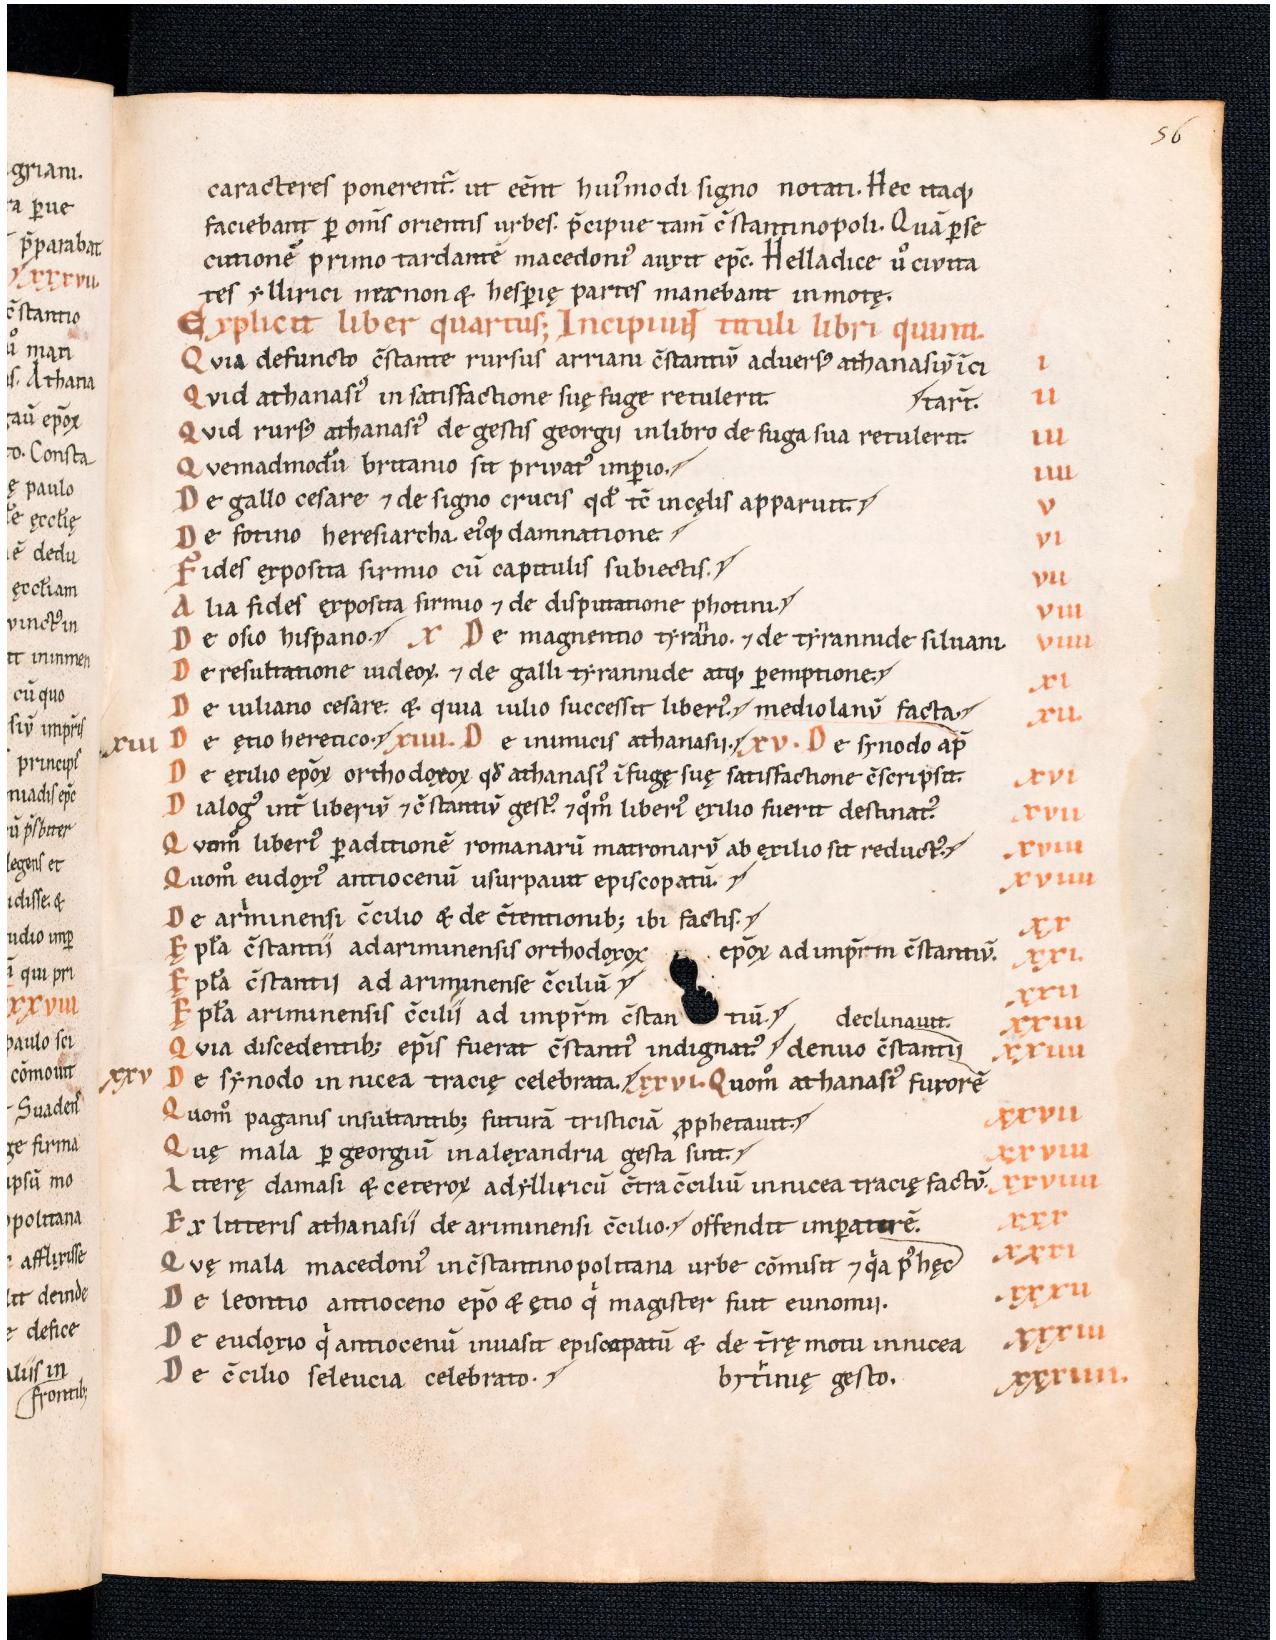 56
caracteres ponerent᷑. ut eēnt hui᷒modi signo notati. Hec itaq;
faciebant ꝑ om̄s orientis urbes. p̄cipue tam̄ c̄stantinopoli. Quā ꝑse
cutionē primo tardantē macedoni᷒ auxit ep̄c. Helladice ů civita
tes yllirici necnon & hesꝑię partes manebant inmotę.
Explicit liber quartus; Incipiunt tituli libri quinti.
Qvia defuncto c̄stante rursus arriani c̄stantiv̄ advers᷒ athanasiv̄ īci i
Qvid athanasi᷒ in satisfactione suę fuge retulerit. /tar̄t. ii
Qvid rurs᷒ athanasi᷒ de gestis georgii inlibro de fuga sua retulerit. iii
Qvemadmodū britanio sit privat᷒ imꝑio. iiii
De gallo cesare ⁊ de signo crucis qd̄ tc̄ incęlis apparuit. v
De fotino heresiarcha. ei᷒q; damnatione. vi
Fides exposita sirmio cū capitulis subiectis. vii
Alia fides exposita sirmio ⁊ de disputatione photini. viii
De osio hispano. x De magnentio tyranno. ⁊ de tyrannide siluani. viiii
De resultatione iudeoꝝ. ⁊ de galli tyrannide atq; ꝑemptione. xi
De iuliano cesare. & quia iulio successit liberi᷒. mediolanv̄ facta. xii.
xiii De ętio heretico. xiiii. De inimicis athanasii. xv. De synodo ap̄
De exilio ep̄oꝝ orthodoxoꝝ qd̄ athanasi᷒ ī fugę suę satisfactione c̄scripsit. xvi
Dialog᷒ int̄ liberiv̄ ⁊ c̄stantiv̄ gest᷒. ⁊ qͦm̄ liberi᷒ exilio fuerit destinat᷒. xvii
Qvom̊ liberi᷒ ꝑ aditionē romanarū matronarv̄ ab exilio sit reduct᷒. xviii
Quom̊ eudoxi᷒ antiocenū usurpauit episcopatū. xviiii
De ariminensi c̄cilio & de c̄tentionib; ibi factis. xx
Epl̄a c̄stantii ad ariminensis orthodoxoꝝ ep̄oꝝ ad imp̄rm c̄stantiv̄. xxi.
Epl̄a c̄stantii ad ariminense c̄ciliū xxii
Epl̄a ariminensis c̄cilii ad imp̄rm c̄stan tiū. declinauit. xxiii
Qvia discedentib; ep̄is fuerat c̄stanti᷒ indignat᷒. denuo c̄stantii xxiiii
xxv De synodo in nicea tracię celebrata. xxvi. Quom̊ athanasi᷒ furorē
Quom̊ paganis insultantib; futurā tristiciā ꝓphetauit. xxvii
Quę mala ꝑ georgiū in alexandria gesta sint. xxviii
Litterę damasi & ceteroꝝ ad yllyricū c̄tra c̄ciliū in nicea tracię factv̄. xxviiii
Ex litteris athanasii de ariminensi c̄cilio. offendit imperatorē. xxx
Qvę mala macedoni᷒ in c̄stantinopolitana urbe cōmisit ⁊ qͣa p᷒ hęc xxxi
De leontio antioceno ep̄o & ętio qͥ magister fuit eunomii. xxxii
De eudoxio qͥ antiocenū inuasit episcopatū & de t̄rę motu in nicea xxxiii
De c̄cilio seleucia celebrato. bytinię gesto. xxxiiii.